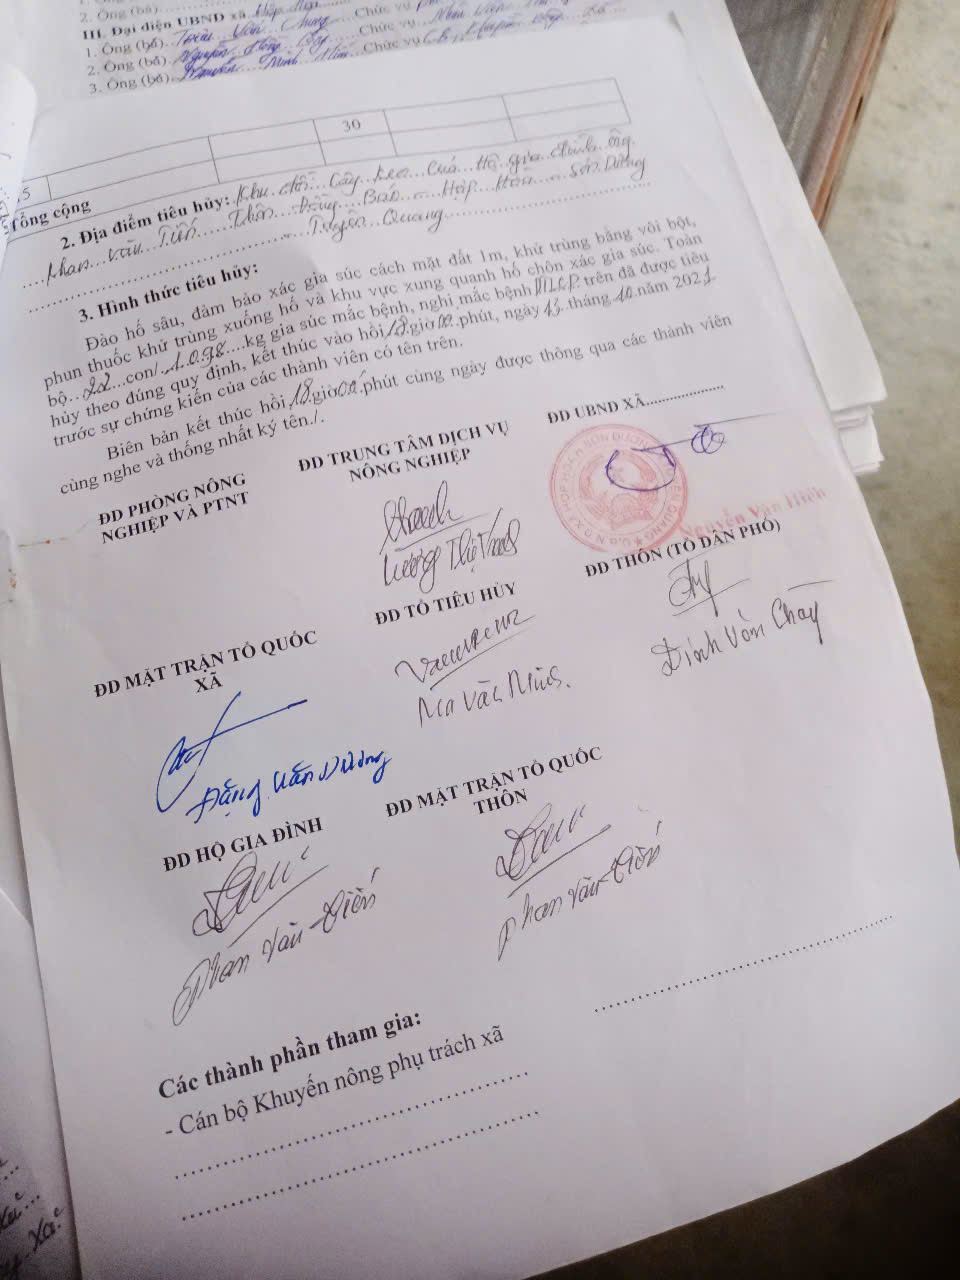 2. Ông (bà)
III. Đại diện UBND xã Hợp Hòa
1. Ông (bà) Trần Văn Chung Chức vụ
2. Ông (bà) Nguyễn Hồng Chức vụ Nhân viên
3. Ông (bà) Nguyễn Minh Chức vụ CB. Khuyến nông xã
30
15
Tổng cộng
2. Địa điểm tiêu hủy: Khu đồi Cây keo của Hộ gia đình ông
Phan Văn Tiến Thôn Đồng Báo - Hợp Hòa - Sơn Dương
- Tuyên Quang
3. Hình thức tiêu hủy:
Đào hố sâu, đảm bảo xác gia súc cách mặt đất 1m, khử trùng bằng vôi bột,
phun thuốc khử trùng xuống hố và khu vực xung quanh hố chôn xác gia súc. Toàn
bộ...22...con/..1.098....kg gia súc mắc bệnh, nghi mắc bệnh DTLCP trên đã được tiêu
hủy theo đúng quy định, kết thúc vào hồi 18 giờ 00 phút, ngày 13 tháng 10 năm 2021
trước sự chứng kiến của các thành viên có tên trên.
Biên bản kết thúc hồi 18 giờ 00 phút cùng ngày được thông qua các thành viên
cùng nghe và thống nhất ký tên./.
ĐD PHÒNG NÔNG
NGHIỆP VÀ PTNT
ĐD TRUNG TÂM DỊCH VỤ
NÔNG NGHIỆP
ĐD UBND XÃ......................
Lương Thị
Nguyễn Văn Hiển
ĐD MẶT TRẬN TỔ QUỐC
XÃ
ĐD TỔ TIÊU HỦY
ĐD THÔN (TỔ DÂN PHỐ)
Đặng Văn Dương
Ma Văn
Đinh Văn Chày
ĐD HỘ GIA ĐÌNH
ĐD MẶT TRẬN TỔ QUỐC
THÔN
Phan Văn Tiến
Phan Văn Tiến
Các thành phần tham gia:
- Cán bộ Khuyến nông phụ trách xã